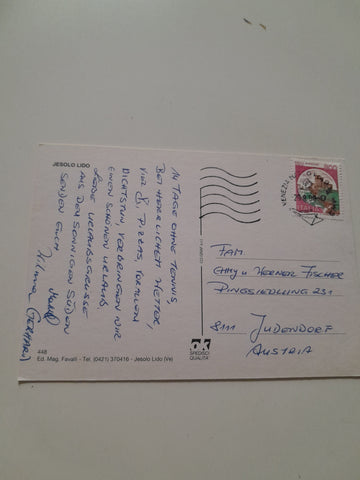 JESOLO LIDO
14 TAGE OHNE TENNIS,
BEI HERRLICHEM WETTER,
VIEL PIZZAS, FORELLEN
DICHTSTUN, VERBRINGEN WIR
EINEN SCHÖNEN URLAUB.
LIEBE URLAUBSGRÜSSE
AUS DEM SONNIGEN SÜDEN
SENDEN EUCH
(GERHARD)
448
Ed. Mag. Favalli - Tel. (0421) 370416 - Jesolo Lido (Ve)
OK
SPEDISCI
QUALITÀ
VENEZIA
ITALIA
FAM.
EMMY u WERNER FISCHER
DINGSIEDLUNG 231
8111 JUDENDORF
AUSTRIA